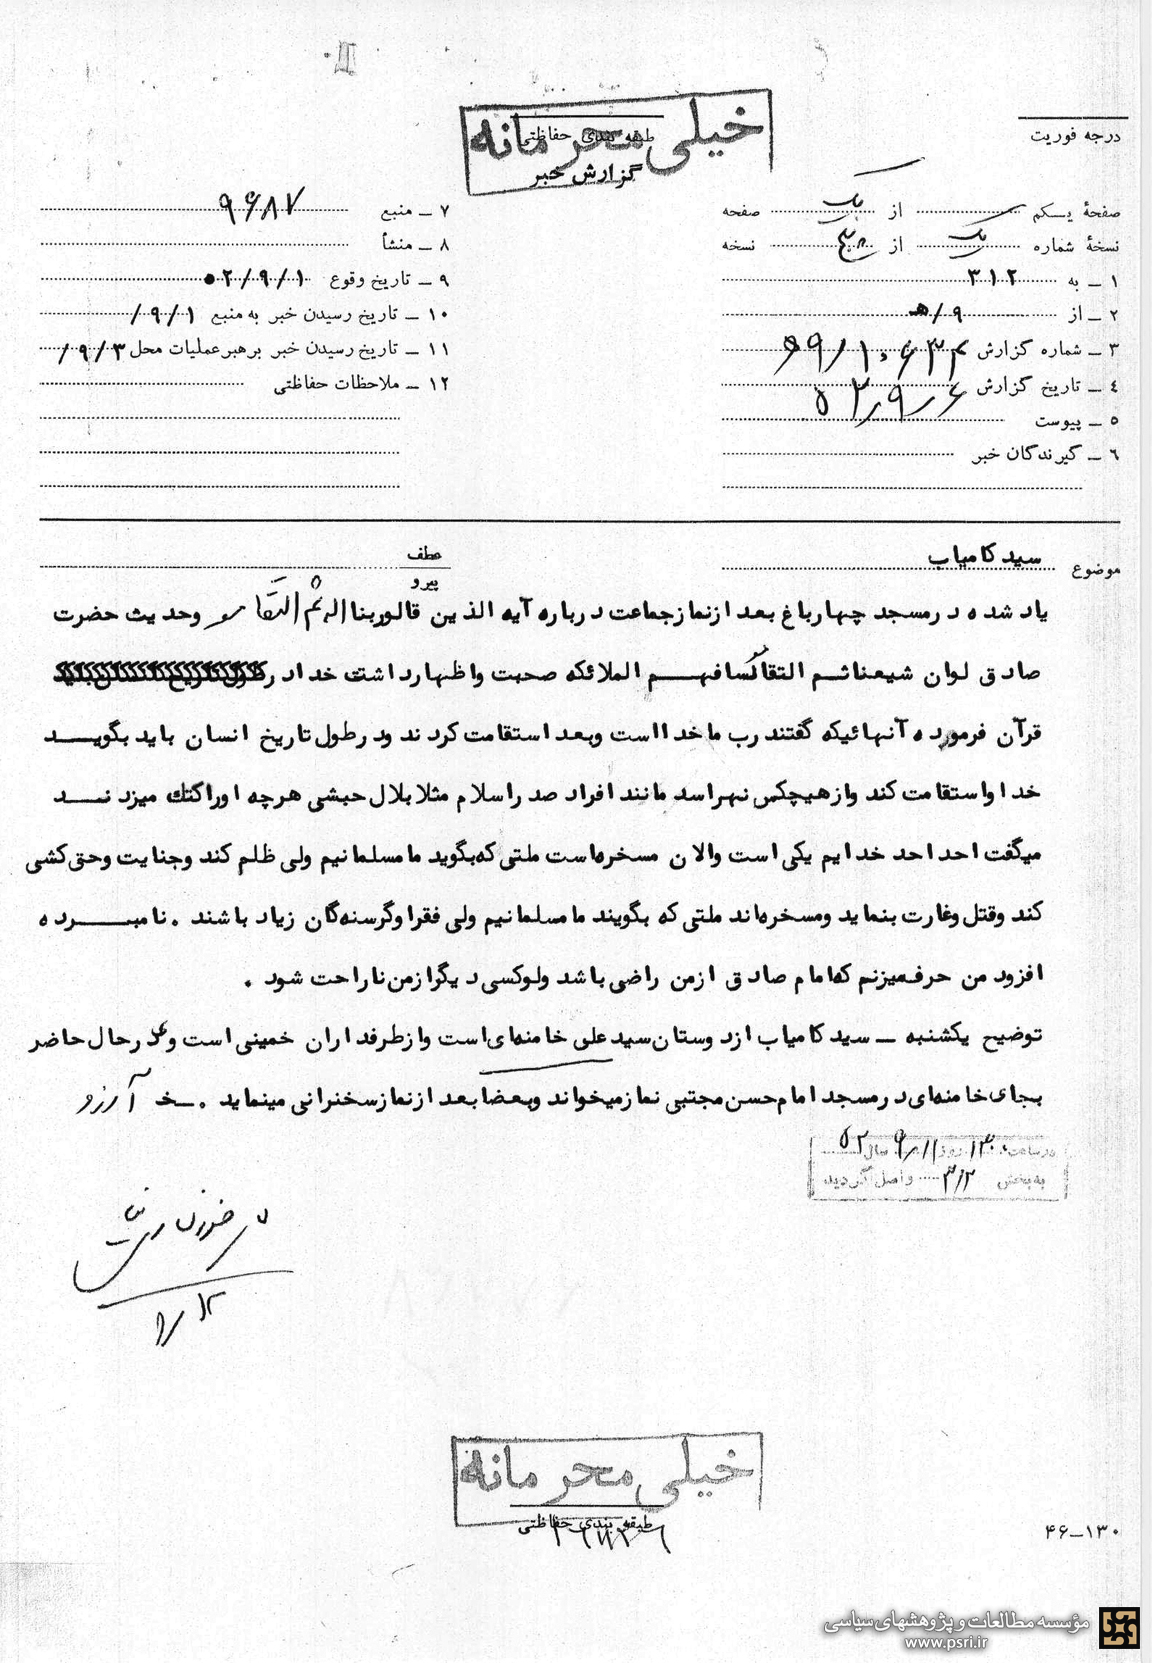 خیلی محرمانه
طبقه بندی حفاظتی
گزارش خبر
درجه فوریت
صفحهٔ یـکم از یک صفحه
نسخهٔ شماره یک از نسخه
۱ ــ به ۳۱۲
۲ ــ از ۹/هـ
۳ ــ شماره گزارش
۴ ــ تاریخ گزارش ۵۲٫۹٫۶
۵ ــ پیوست
۶ ــ گیرندگان خبر
۷ ــ منبع ۹۶۸۷
۸ ــ منشأ
۹ ــ تاریخ وقوع ۵۲/۹/۱
۱۰ ــ تاریخ رسیدن خبر به منبع ۹/۱/
۱۱ ــ تاریخ رسیدن خبر برهبر عملیات محل ۹/۳/
۱۲ ــ ملاحظات حفاظتی
موضوع سید کامیاب
عطف
پیرو
یاد شده در مسجد چهارباغ بعد از نماز جماعت درباره آیه الذین قالوربنا اله ثم وحدیث حضرت
صادق لوان شیعناثم التقا کسافهم الملائکه صحبت واظهار داشت خدا در
قرآن فرموده آنهائیکه گفتند رب ما خدا است وبعد استقامت کردند ودر طول تاریخ انسان باید بگوید
خدا واستقامت کند واز هیچکس نهراسد مانند افراد صدر اسلام مثلا بلال حبشی هرچه اورا کتک میزدند
میگفت احد احد خدایم یکی است والان مسخره است ملتی که بگوید ما مسلمانیم ولی ظلم کند وجنایت وحق کشی
کند وقتل وغارت بنماید ومسخره اند ملتی که بگویند ما مسلمانیم ولی فقرا وگرسنه گان زیاد باشند . نامبرده
افزود من حرف میزنم که امام صادق از من راضی باشد ولو کسی دیگر از من ناراحت شود .
توضیح یکشنبه ــ سید کامیاب از دوستان سید علی خامنه ای است واز طرفداران خمینی است و در حال حاضر
بجای خامنه ای در مسجد امام حسن مجتبی نماز میخواند وبعضا بعد از نماز سخنرانی مینماید . ــخ آرزو
در ساعت ۱۳۰۰ روز ۹٫۱۱ سال ۵۲
به بخش ۳۱۲ واصل گردید
خیلی محرمانه
طبقه بندی حفاظتی
۴۶ــ۱۳۰
مؤسسه مطالعات و پژوهشهای سیاسی
www.psri.ir